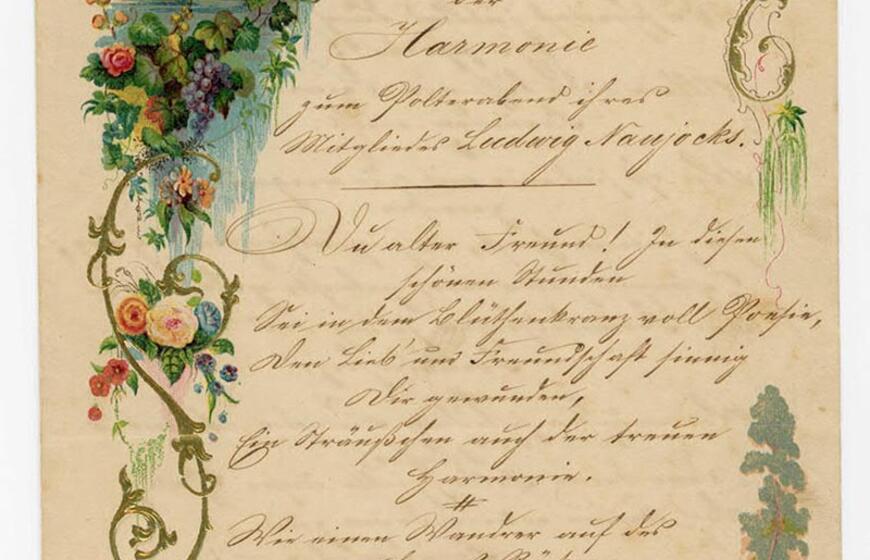 der
Harmonie
zum Polterabend ihres
Mitgliedes Ludwig Naujocks.
Du alter Freund! In diesen
schönen Stunden
Sei in dem Blüthenkranz voll Poesie,
Den Lieb' und Freundschaft sinnig
Dir gewunden,
Ein Sträußchen auch der treuen
Harmonie.
Wie einen Wandrer auf des